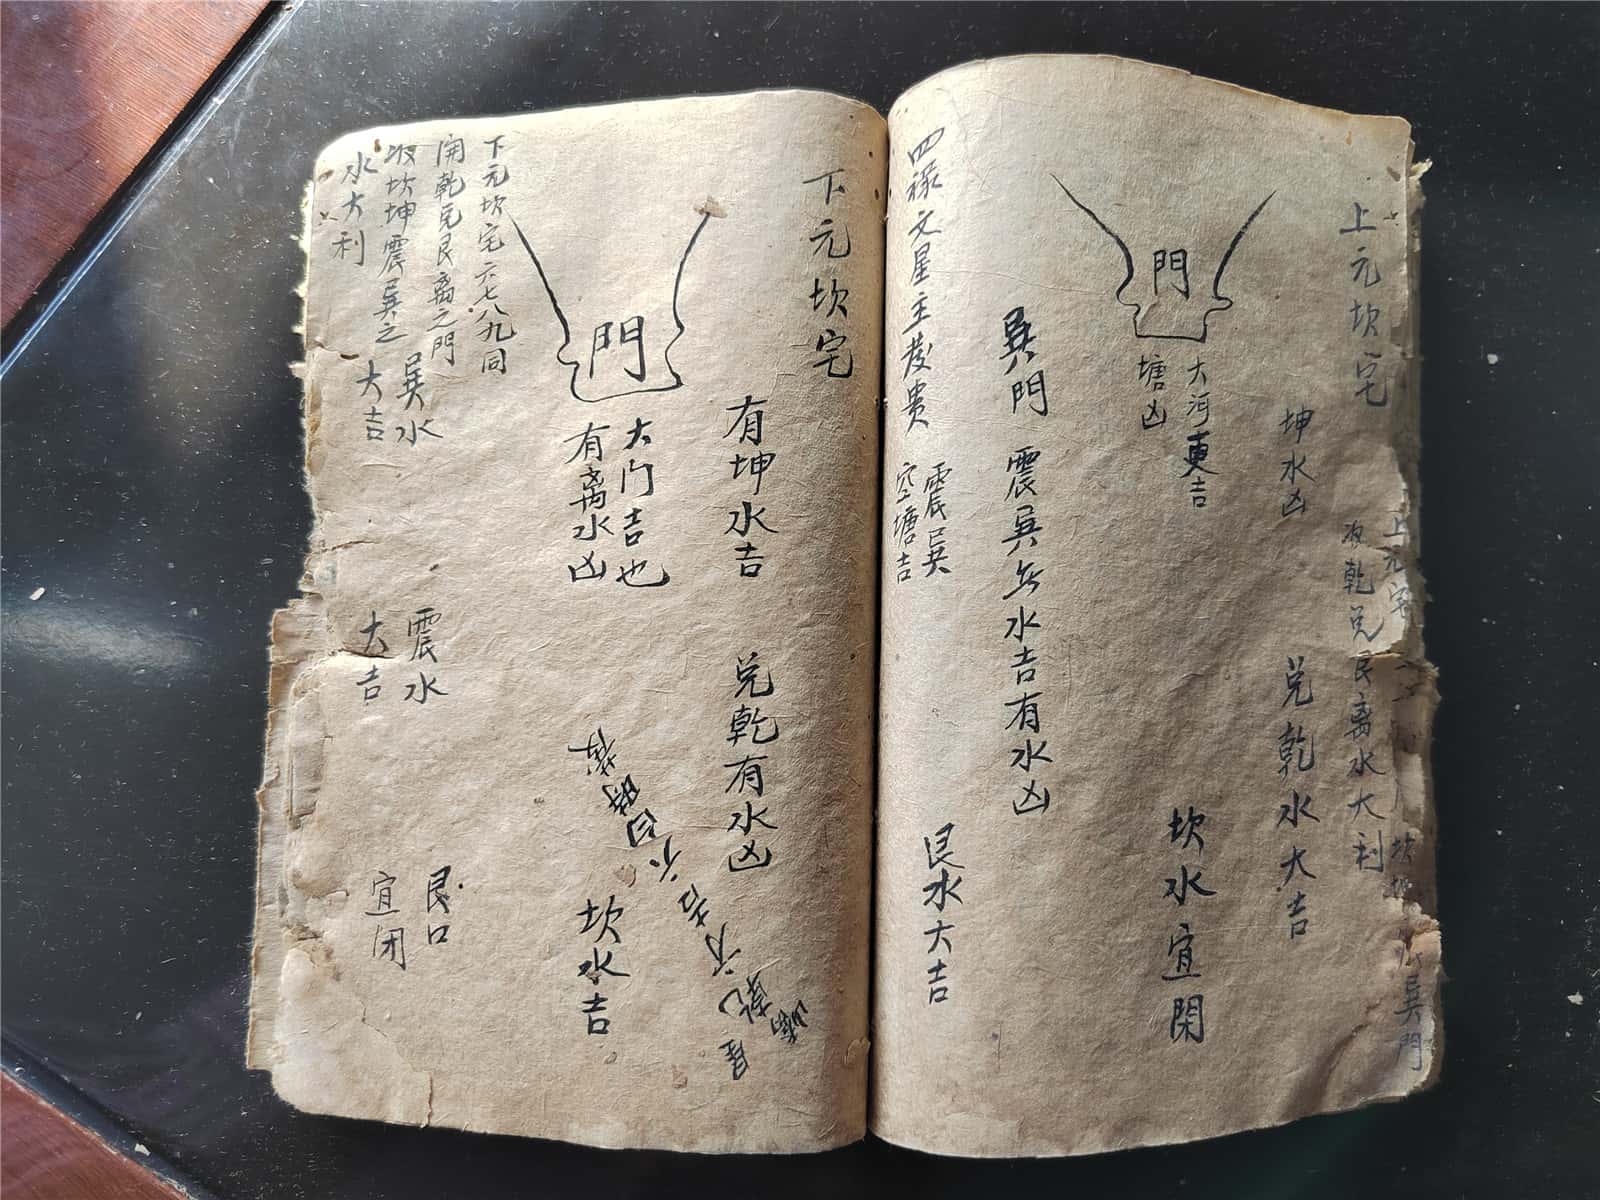 上元坎宅
上元宅
坎
巽門
收乾兌艮離水大利
坤水凶
兌乾水大吉
大河更吉
塘凶
坎水宜閑
門
巽門
震巽無水吉有水凶
四祿文星主發貴
震巽
空塘吉
艮水大吉
下元坎宅
有坤水吉
兌乾有水凶
大门吉也
有离水凶
門
坎水吉
下元坎宅六七八九同
開乾兌艮离之門
收坎坤震巽之
水大利
巽水
大吉
震水
大吉
艮口
宜闭